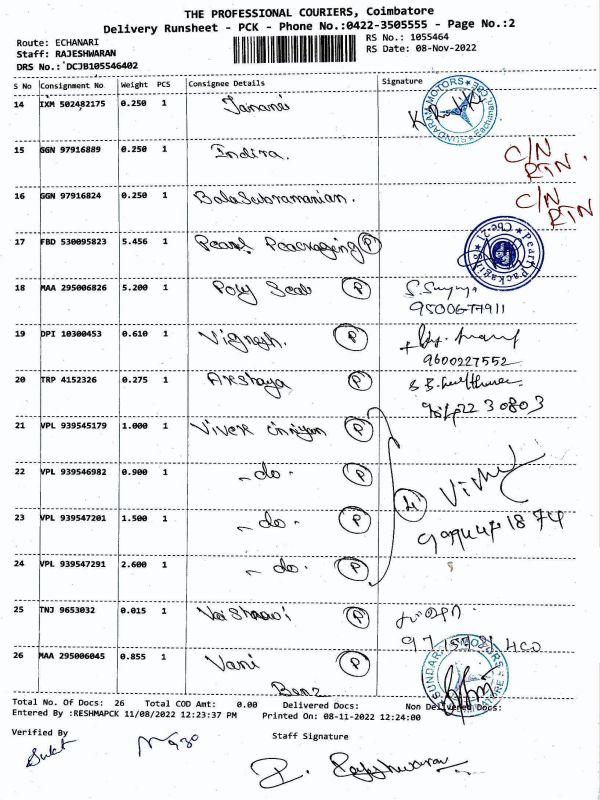 THE PROFESSIONAL COURIERS, Coimbatore
Delivery Runsheet - PCK - Phone No.:0422-3505555 - Page No.:2
Route: ECHANARI
RS No.: 1055464
Staff: RAJESHWARAN
RS Date: 08-Nov-2022
DRS No.: DCJB105546402
S No Consignment No Weight PCS Consignee Details Signature
14 IXM 502482175 0.250 1 Janani
15 GGN 97916889 0.250 1 Indira. C/N RTN.
16 GGN 97916824 0.250 1 BalaSubramanian. C/N RTN
17 FBD 530095823 5.456 1 Pearl Peackaging P
18 MAA 295006826 5.200 1 Poly Seal P
9500677911
19 DPI 10300453 0.610 1 Vignesh. P
9600227552
20 TRP 4152326 0.275 1 Akshaya P
21 VPL 939545179 1.000 1 Vivek P
22 VPL 939546982 0.900 1 - do - P
23 VPL 939547201 1.500 1 - do - P
24 VPL 939547291 2.600 1 - do - P
25 TNJ 9653032 0.015 1 Vaishnavi P
26 MAA 295006045 0.855 1 Vani P
Benz
Total No. Of Docs: 26 Total COD Amt: 0.00 Delivered Docs: Non Delivered Docs:
Entered By :RESHMAPCK 11/08/2022 12:23:37 PM Printed On: 08-11-2022 12:24:00
Verified By
Staff Signature
R. Rajeshwaran